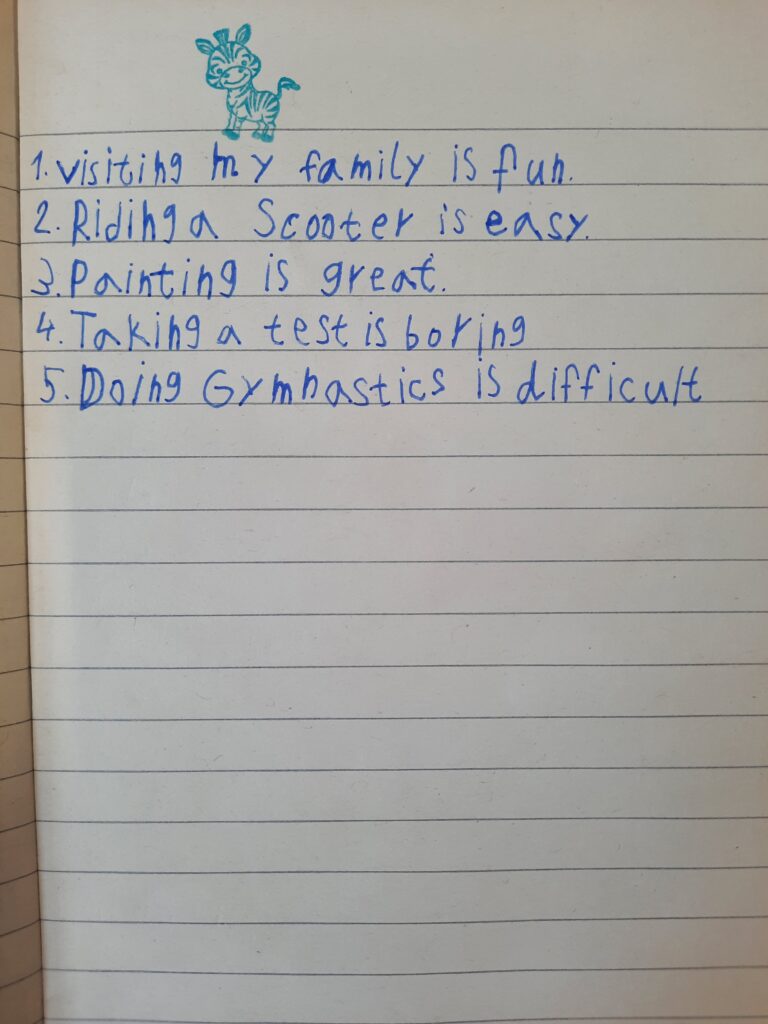 1. visiting my family is fun.
2. Riding a Scooter is easy.
3. Painting is great.
4. Taking a test is boring
5. Doing Gymnastics is difficult